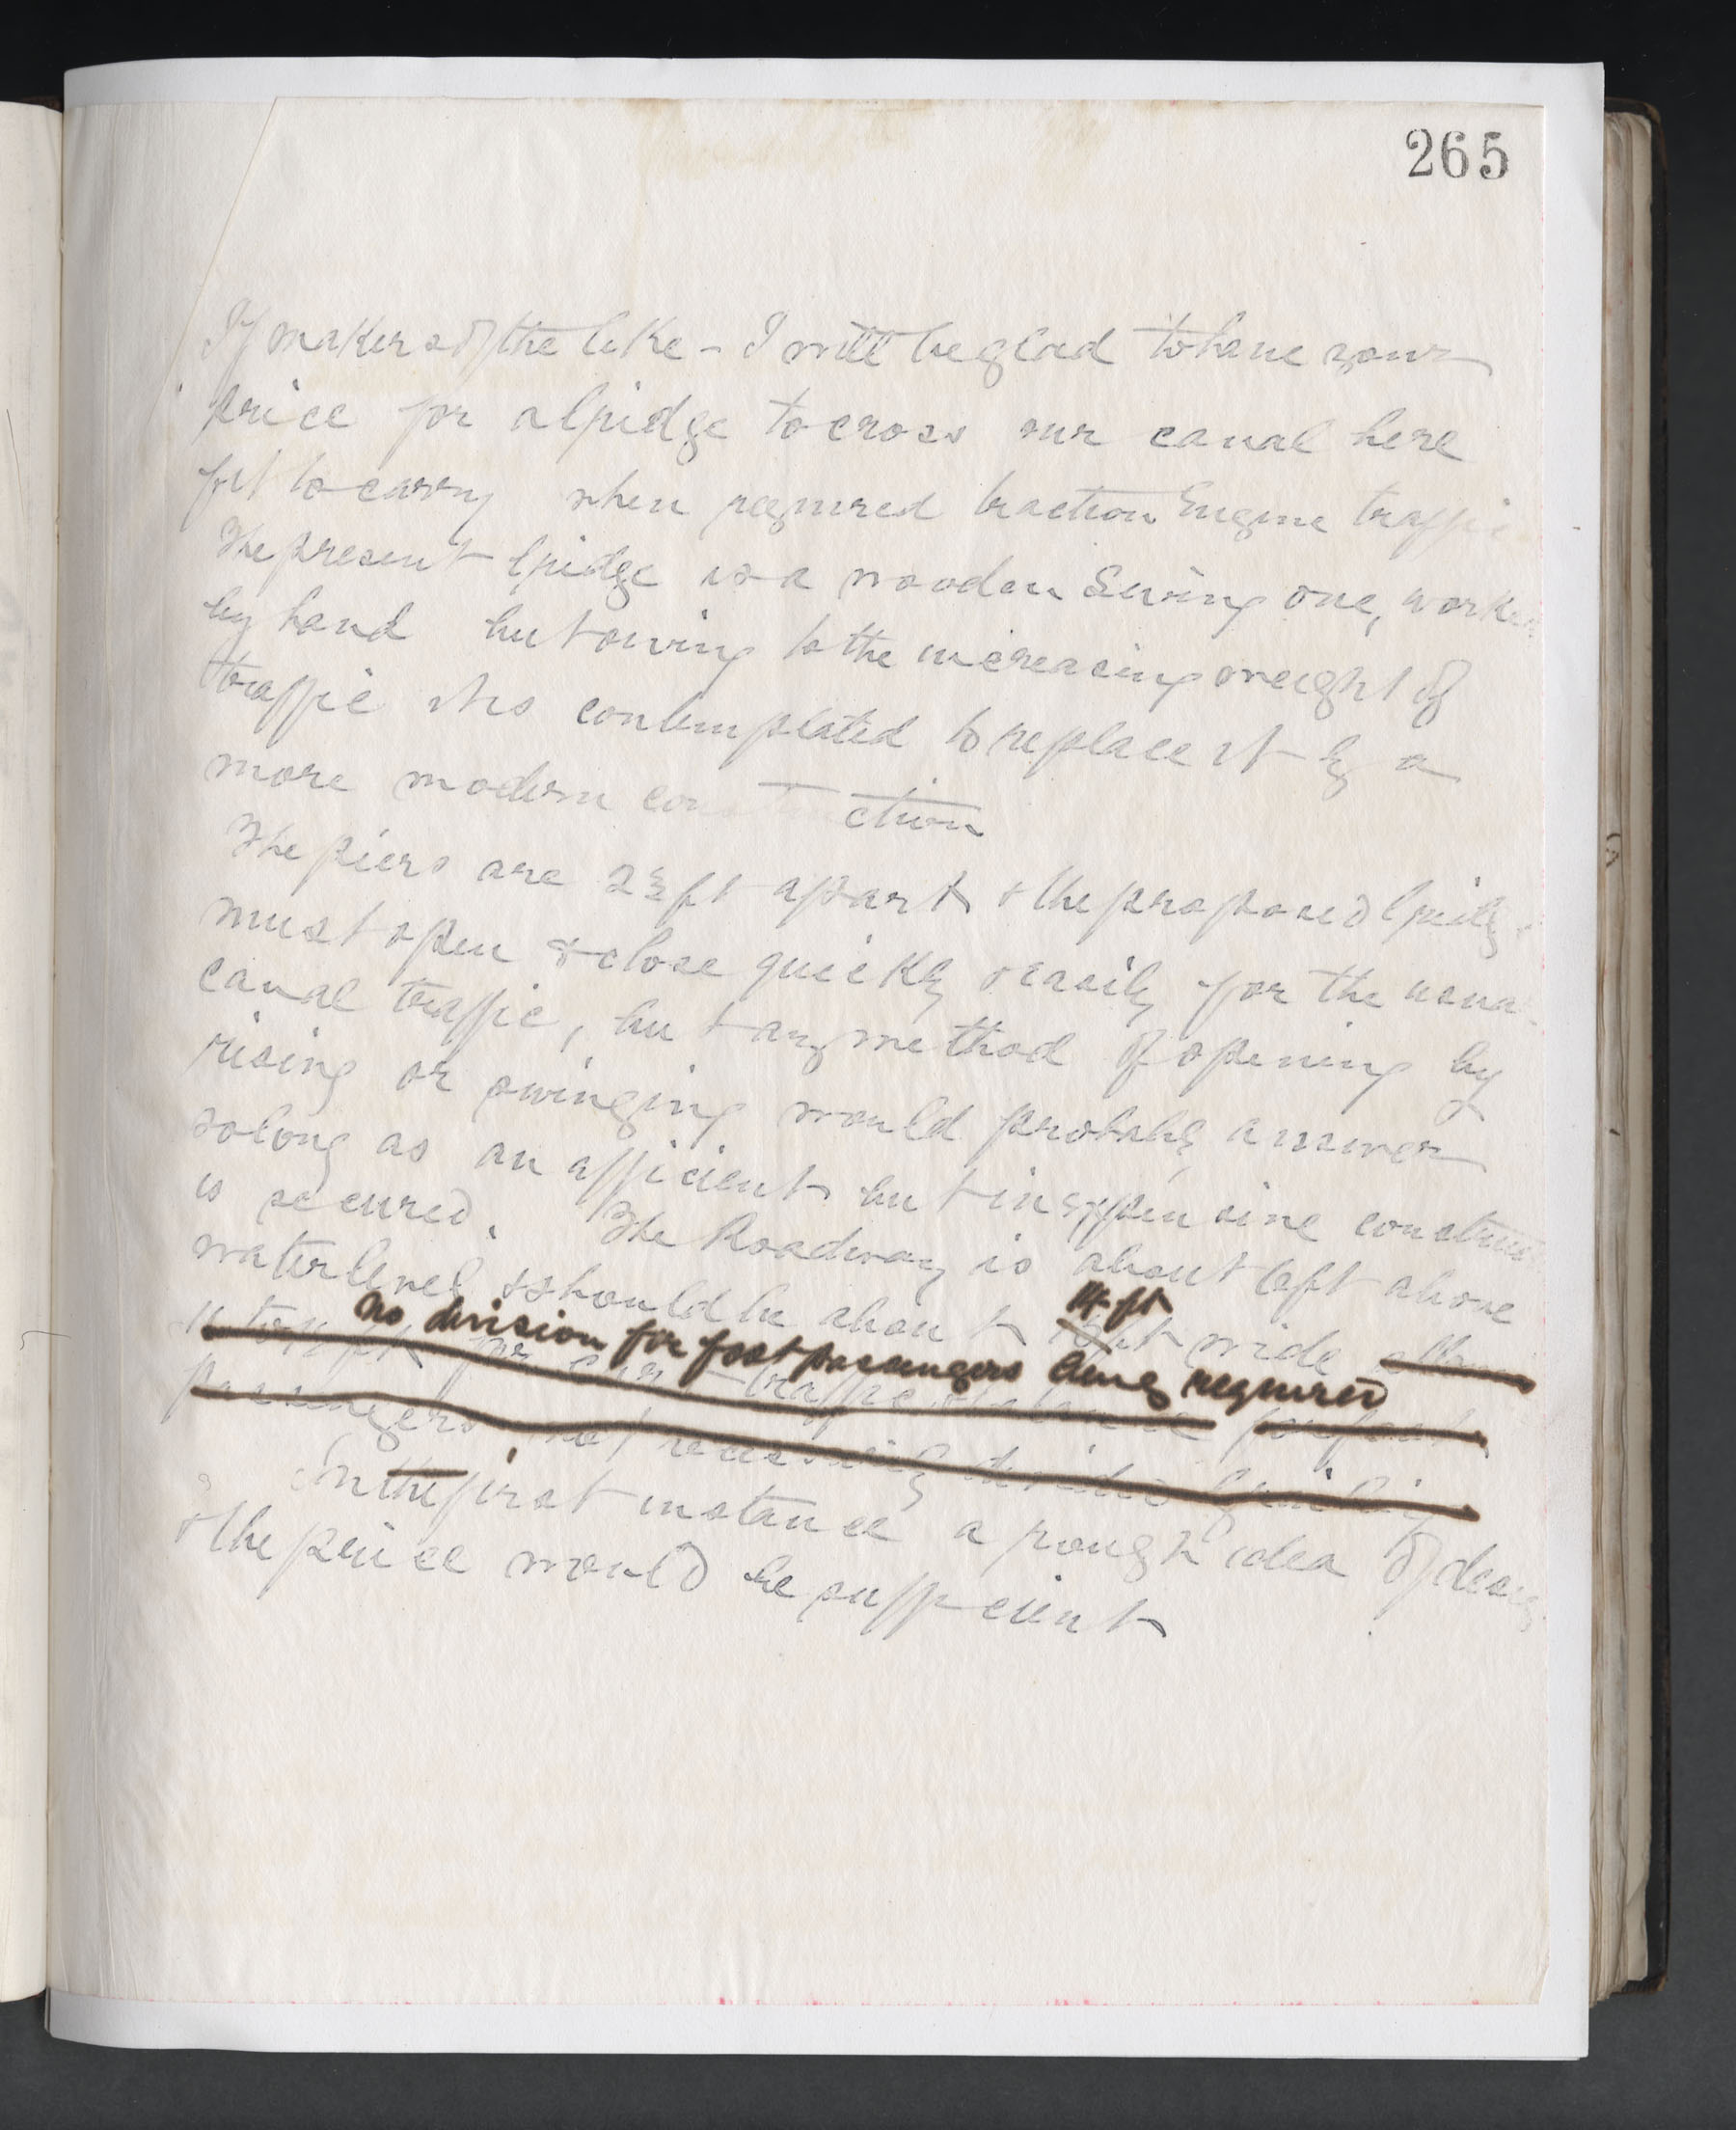 265
If makers of the like - I will be glad to have your
price for a bridge to cross our canal here
fit to carry when required traction Engine traffic
The present bridge is a wooden Swing one, worked
by hand but owing to the increasing weight of
traffic it is contemplated to replace it by a
more modern construction
The piers are ft apart & the proposed bridge
must open & close quickly & easily for the usual
canal traffic, but any method of opening by
rising or swinging would probably answer
so long as an efficient but inexpensive construc
is secured. The Roadway is about 6ft above
14 ft
water level & should be about wide
no division for foot passengers being required
for cart traffic & balance for foot
passengers not necessarily divided by railing
In the first instance a rough idea of design
& the price would be sufficient